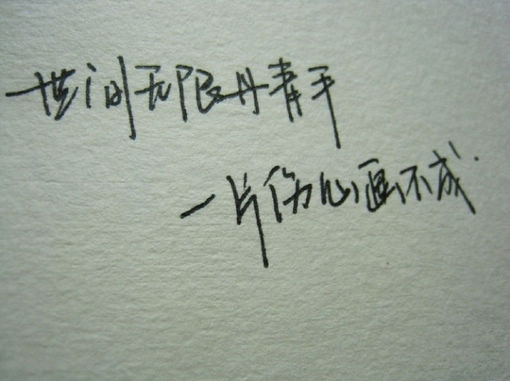 世间无限丹青手
一片伤心画不成.